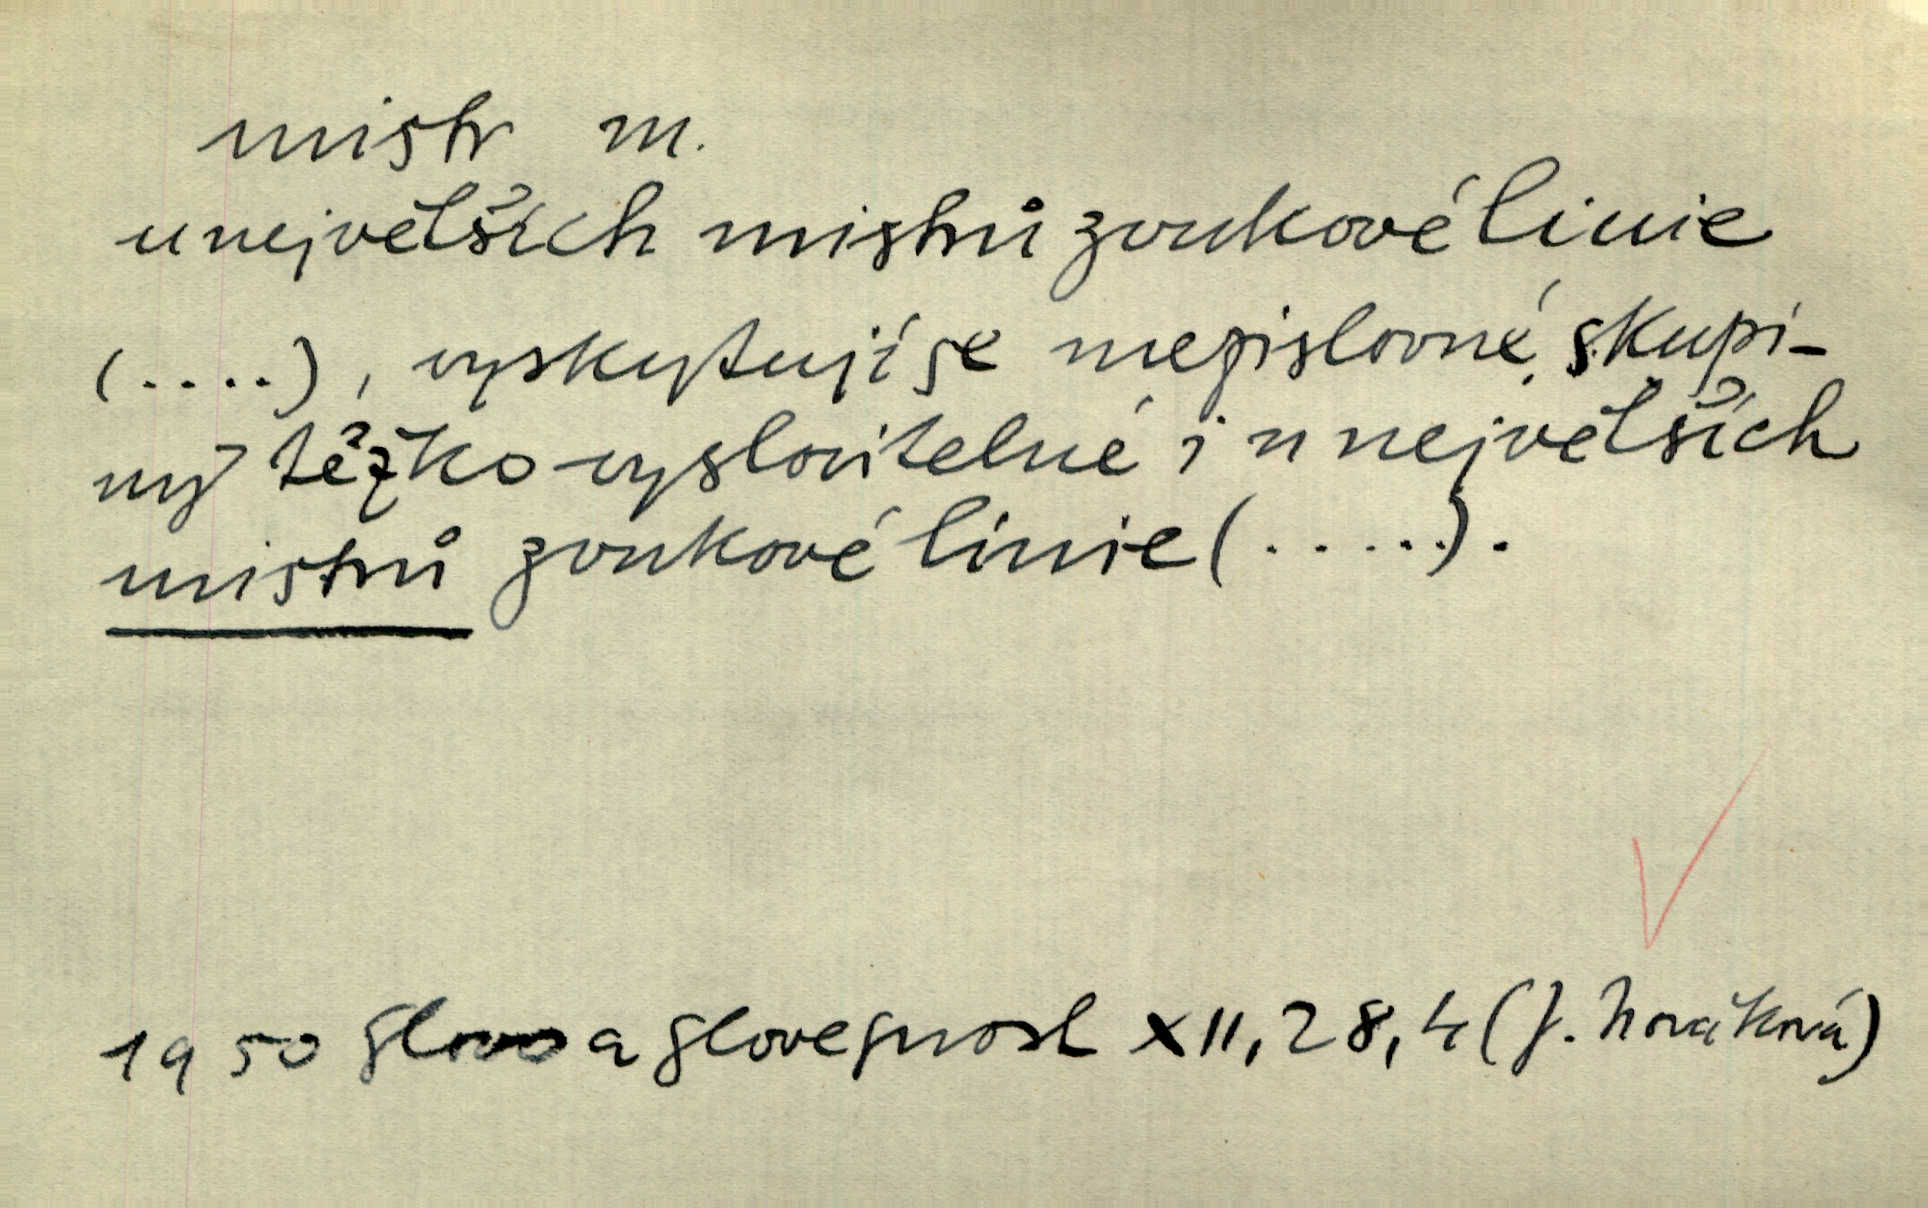 mistr m.
u největších mistrů zvukové linie
(.....), vyskytují se mezislovné skupi-
ny těžko vyslovitelné i u největších
mistrů zvukové linie (.....).
1950 Slovo a slovesnost XII, 28, 4 (J. Nováková)